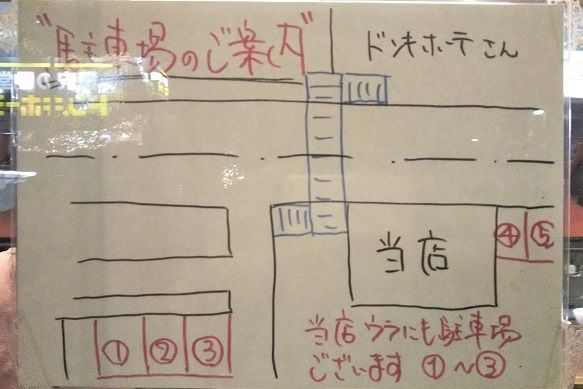 "駐車場のご案内"
ドンキホーテさん
当店
④ ⑤
① ② ③
当店ウラにも駐車場
ございます ① 〜 ③